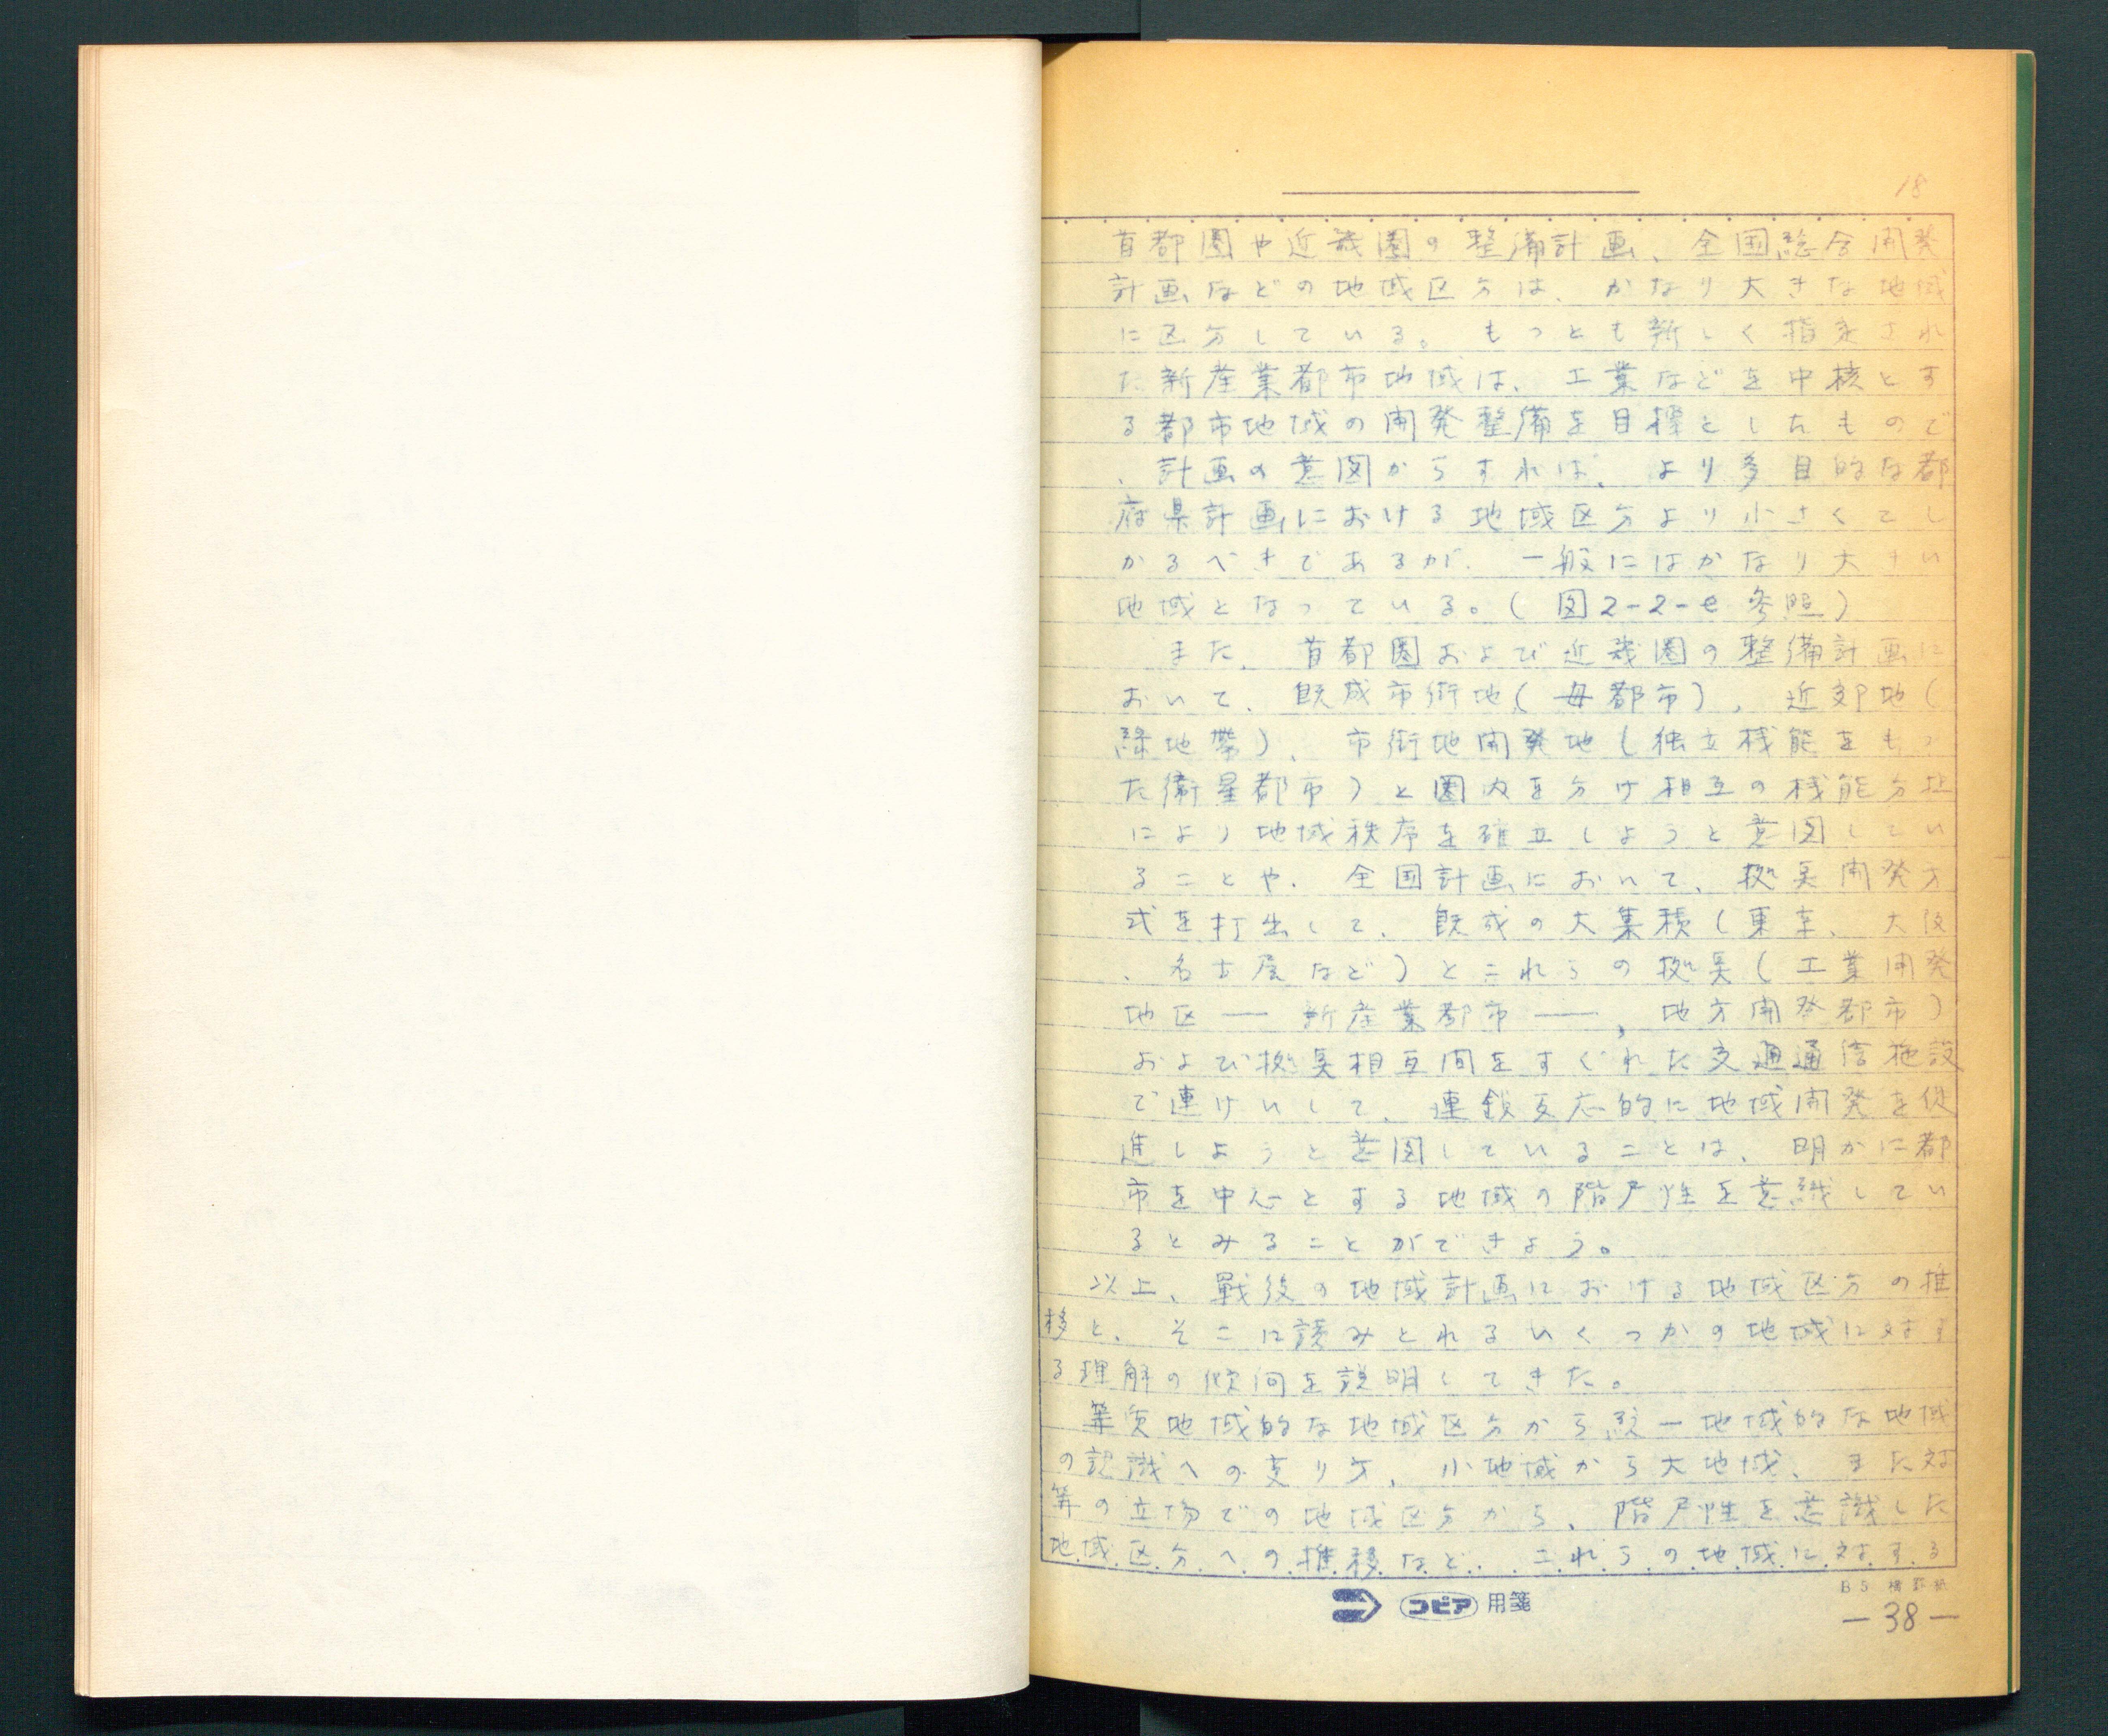 18
首都圏や近畿圏の整備計画、全国総合開発
計画などの地域区分は、かなり大きな地域
に区分している。もっとも新しく指定され
た新産業都市地域は、工業などを中核とす
る都市地域の開発整備を目標としたもので
、計画の意図からすれば、より多目的な都
府県計画における地域区分より小さくてし
かるべきであるが、一般にはかなり大きい
地域となっている。(図2-2-e参照)
また、首都圏および近畿圏の整備計画に
おいて、既成市街地(母都市)、近郊地(
緑地帯)、市街地開発地(独立機能をもっ
た衛星都市)と圏内を分け相互の機能分担
により地域秩序を確立しようと意図してい
ることや、全国計画において、拠点開発方
式を打出して、既成の大集積(東京、大阪
、名古屋など)とこれらの拠点(工業開発
地区——新産業都市——,地方開発都市)
および拠点相互間をすぐれた交通通信施設
で連けいして、連鎖反応的に地域開発を促
進しようと意図していることは、明かに都
市を中心とする地域の階層性を意識してい
るとみることができよう。
以上、戦後の地域計画における地域区分の推
移と、そこに読みとれるいくつかの地域に対す
る理解の傾向を説明してきた。
等質地域的な地域区分から統一地域的な地域
の認識への変り方、小地域から大地域、また対
等の立場での地域区分から、階層性を意識した
地域区分への推移など、これらの地域に対する
コピア 用箋
B5 横罫紙
—38—